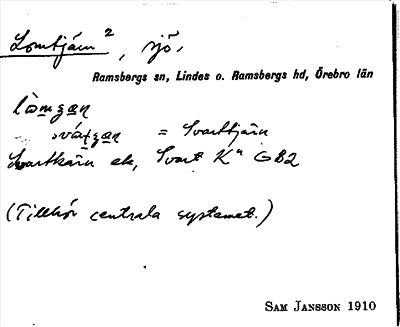 Lomtjärn 2, sjö,
Ramsbergs sn, Lindes o. Ramsbergs hd, Örebro län
= Svarttjärn
Svartkärn ek, Svart Kn GB2
(Tillhör centrala systemet.)
SAM JANSSON 1910